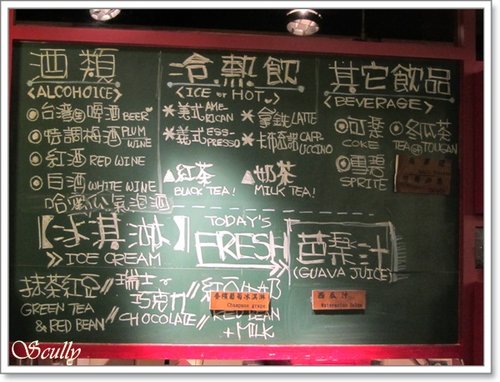 酒類
<ALCOHOICE>
台灣啤酒 BEER
特調梅酒 PLUM WINE
紅酒 RED WINE
白酒 WHITE WINE
冷熱飲
<ICE or HOT>
美式 AMERICAN
義式 ESSPRESSO
拿鐵 LATTE
卡布 CAPPUCCINO
紅茶
BLACK TEA!
奶茶
MILK TEA!
其它飲品
<BEVERAGE>
可樂
COKE
雪碧
SPRITE
冬瓜茶
TEA@TOUGAN
【冰淇淋】
>> ICE CREAM
抹茶紅豆
GREEN TEA
& RED BEAN
瑞士
巧克力
CHOCOLATE
RED BEAN
+ MILK
香檳葡萄冰淇淋
Champane grape
TODAY'S
FRESH
芭樂汁
(GUAVA JUICE)
西瓜汁
Scully